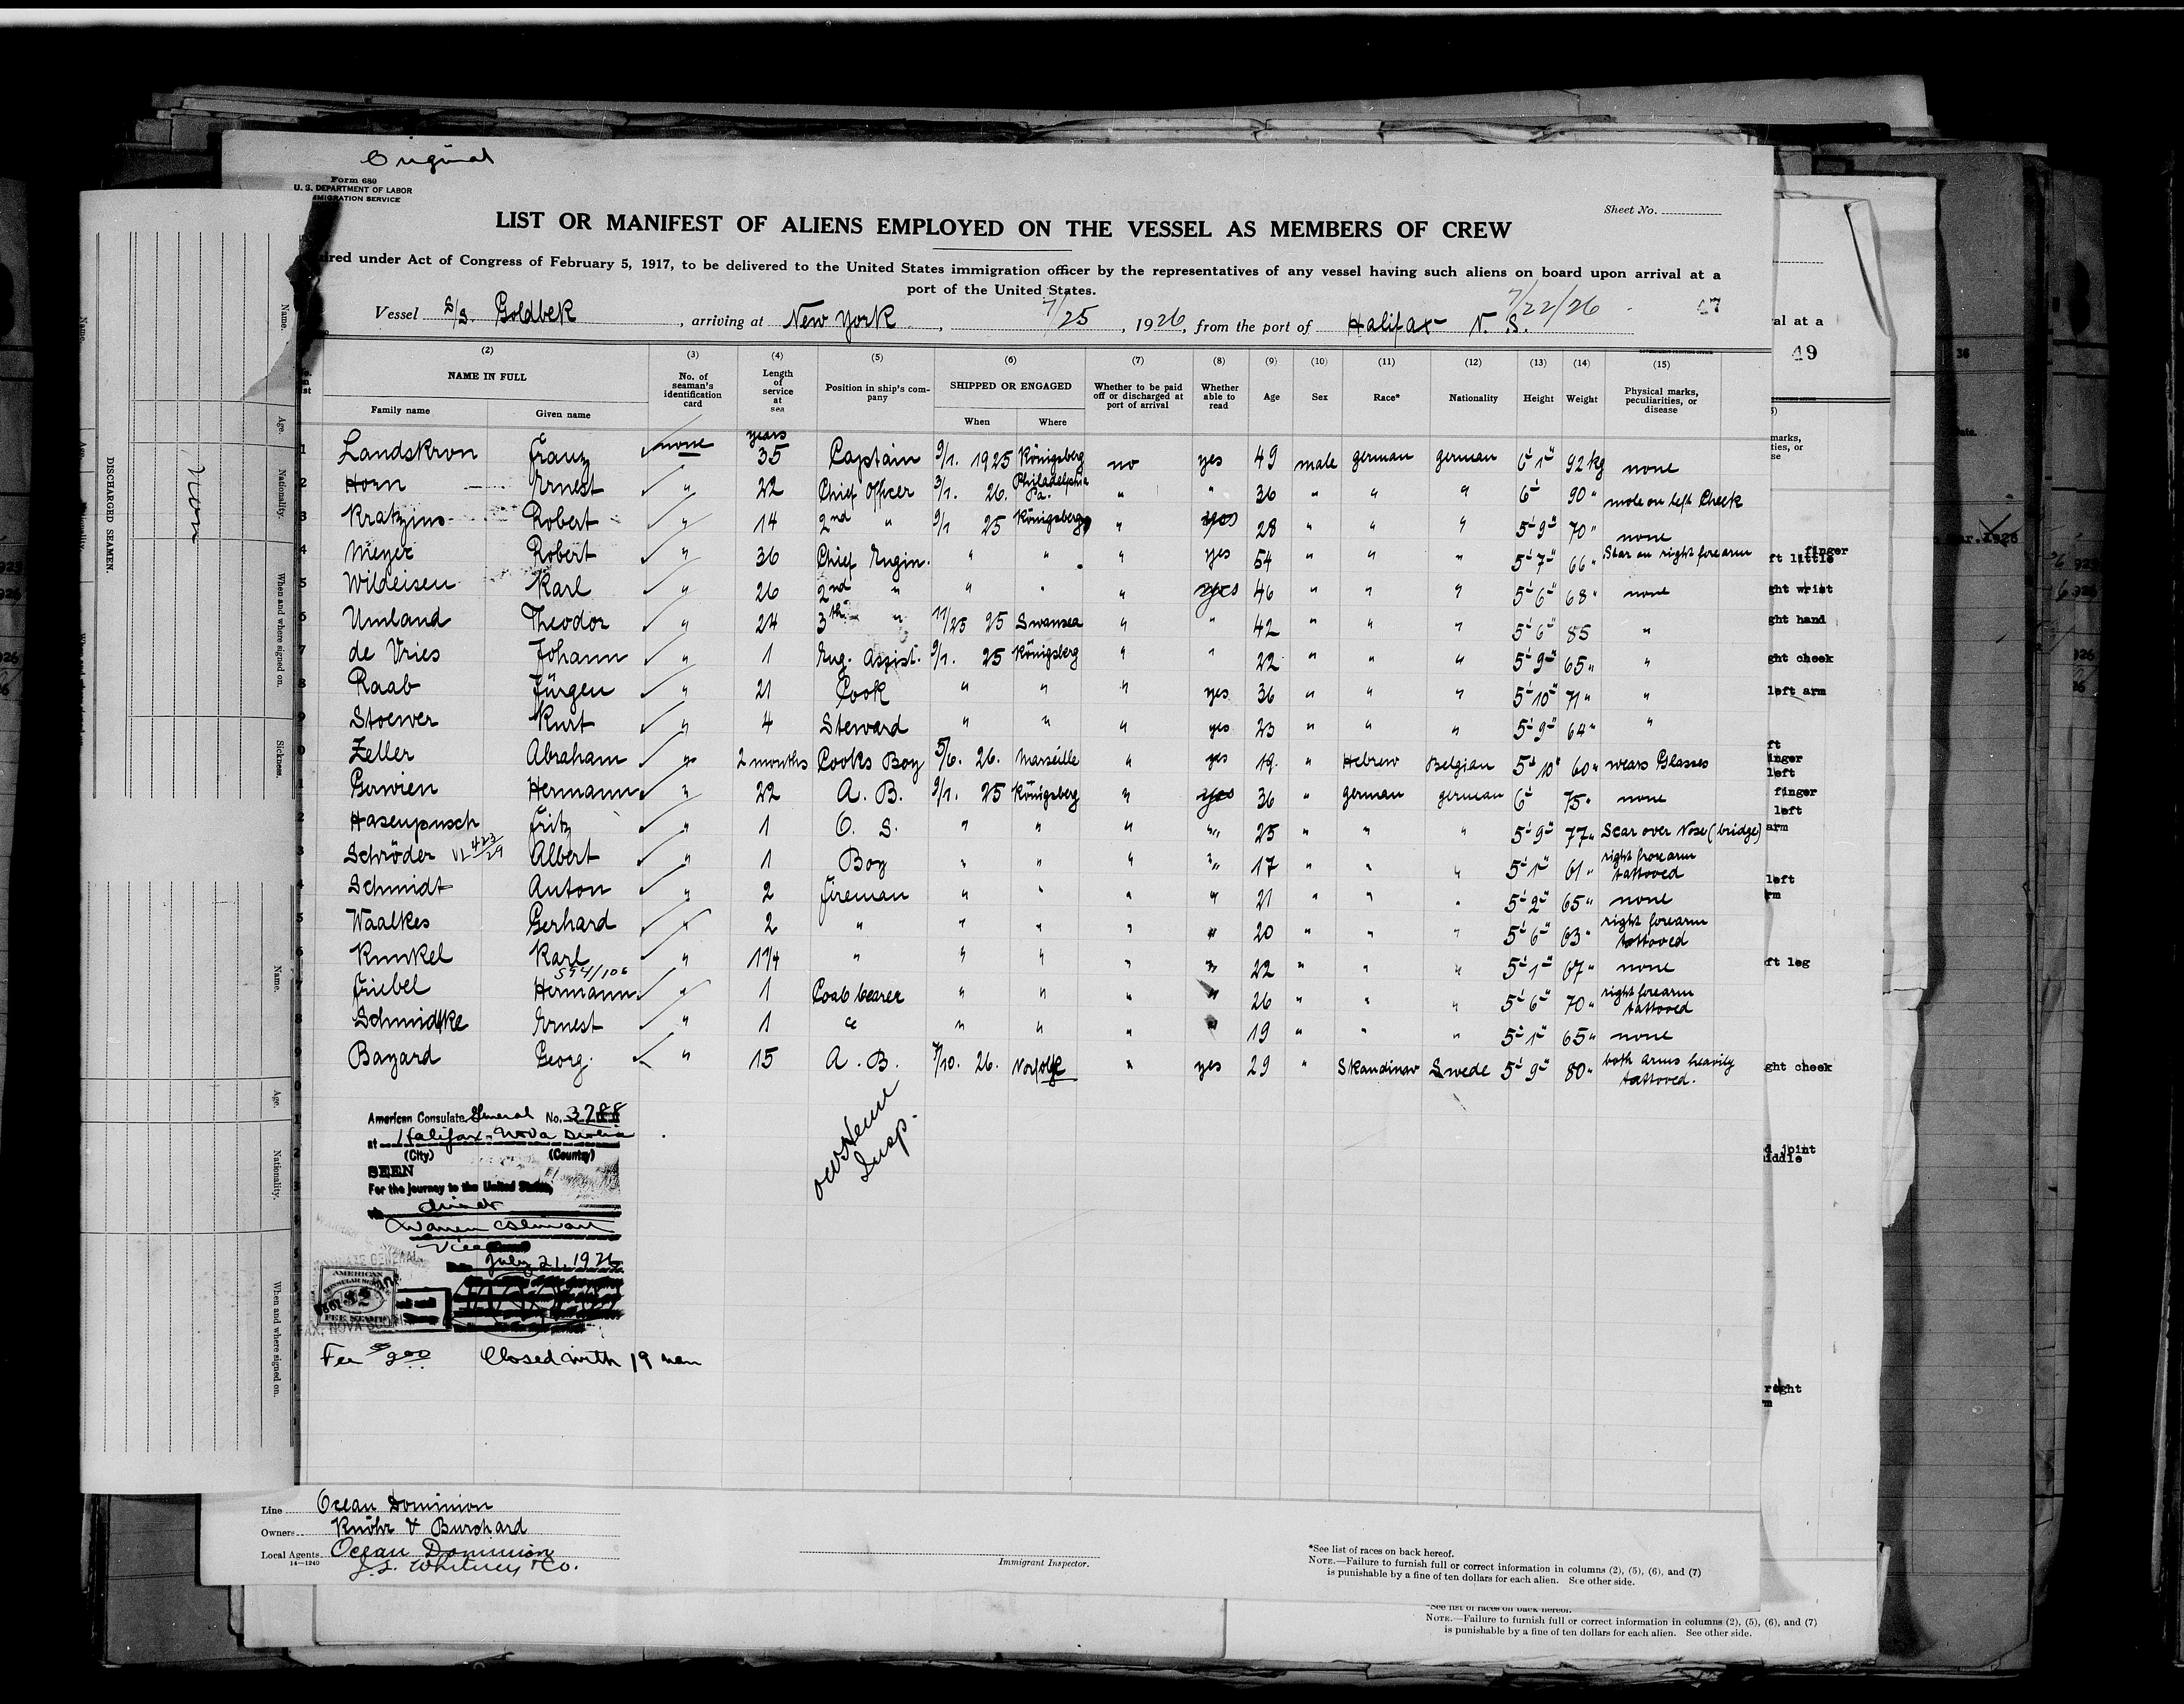 Original
Form 680
U. S. DEPARTMENT OF LABOR
IMMIGRATION SERVICE
Sheet No.
LIST OR MANIFEST OF ALIENS EMPLOYED ON THE VESSEL AS MEMBERS OF CREW
ired under Act of Congress of February 5, 1917, to be delivered to the United States immigration officer by the representatives of any vessel having such aliens on board upon arrival at a
port of the United States.
Vessel S/S. Goldbek, arriving at New York, 7/25, 1926, from the port of Halifax N. S. 7/22/26
(2) (3) (4) (5) (6) (7) (8) (9) (10) (11) (12) (13) (14) (15)
NAME IN FULL No. of seaman's identification card Length of service at sea Position in ship's company SHIPPED OR ENGAGED Whether to be paid off or discharged at port of arrival Whether able to read Age Sex Race* Nationality Height Weight Physical marks, peculiarities, or disease
Family name Given name When Where
1 Landskron Franz none years 35 Captain 9/1. 1925 Königsberg no yes 49 male german german 6' 1" 92 kg none
2 Horn Ernest " 22 Chief Officer 3/1. 26. Philadelphia Pa. " " 36 " " " 6' 90 " mole on left Cheek
3 Kratzius Robert " 14 2nd " 9/1 25 Königsberg " yes 28 " " " 5' 9" 70 " none
4 Meyer Robert " 36 Chief Engin. " " " yes 54 " " " 5' 7" 66 " Star on right forearm
5 Wildeisen Karl " 26 2nd " " " " yes 46 " " " 5' 6" 68 " none
6 Umland Theodor " 24 3th " 11/25 25 Swansea " " 42 " " " 5' 6" 85 "
7 de Vries Johann " 1 Eng. Assist. 9/1. 25 Königsberg " " 22 " " " 5' 9" 65 " "
8 Raab Jürgen " 21 Cook " " " yes 36 " " " 5' 10" 71 " "
9 Stoewer Kurt " 4 Steward " " " yes 23 " " " 5' 9" 64 " "
0 Zeller Abraham " 2 months Cooks Boy 5/6. 26. Marseille " yes 19 " Hebrew Belgian 5' 10" 60 " wears Glasses
1 Gerwien Hermann " 22 A. B. 9/1. 25 Königsberg " yes 36 " german german 6' 75 " none
2 Hasenpusch Fritz " 1 O. S. " " " " 25 " " " 5' 9" 77 " Scar over Nose (bridge)
3 Schröder 423/29 Albert " 1 Boy " " " " 17 " " " 5' 1" 61 " right forearm tattooed
4 Schmidt Anton " 2 Fireman " " " " 21 " " " 5' 2" 65 " none
5 Waalkes Gerhard " 2 " " " " " 20 " " " 5' 6" 63 " right forearm tattooed
6 Kunkel Karl " 1 1/4 " " " " " 22 " " " 5' 1" 67 " none
7 Friebel 594/106 Hermann " 1 Coal bearer " " " " 26 " " " 5' 6" 70 " right forearm tattooed
8 Schmidtke Ernest " 1 " " " " " 19 " " " 5' 1" 65 " none
9 Bayard Georg. " 15 A. B. 7/10. 26. Norfolk " yes 29 " Skandinav Swede 5' 9" 80 " both arms heavily tattooed.
American Consulate General No. 3788
at Halifax - Nova Scotia
(City) (Country)
SEEN
For the journey to the United States,
via direct
Vice
Date July 21, 1926
AMERICAN
CONSULAR SERVICE
$2
FEE STAMP
Insp.
Fee $2.00 Closed with 19 men
Line Ocean Dominion
Owners Knöhr & Burchard
Local Agents Ocean Dominion
14—1240
J. S. Whitney & Co.
Immigrant Inspector.
*See list of races on back hereof.
NOTE.—Failure to furnish full or correct information in columns (2), (5), (6), and (7)
is punishable by a fine of ten dollars for each alien. See other side.
*See list of races on back hereof.
NOTE.—Failure to furnish full or correct information in columns (2), (5), (6), and (7)
is punishable by a fine of ten dollars for each alien. See other side.
DISCHARGED SEAMEN.
Name.
Age.
Nationality.
When and where signed on.
Sickness.
Name.
Age.
Nationality.
When and where signed on.
val at a
49
marks,
ties, or
se
ft little finger
ght wrist
ght hand
ght cheek
left arm
ft
inger
left
finger
left
arm
left
rm
ft leg
ght cheek
d joint
iddle
right
m